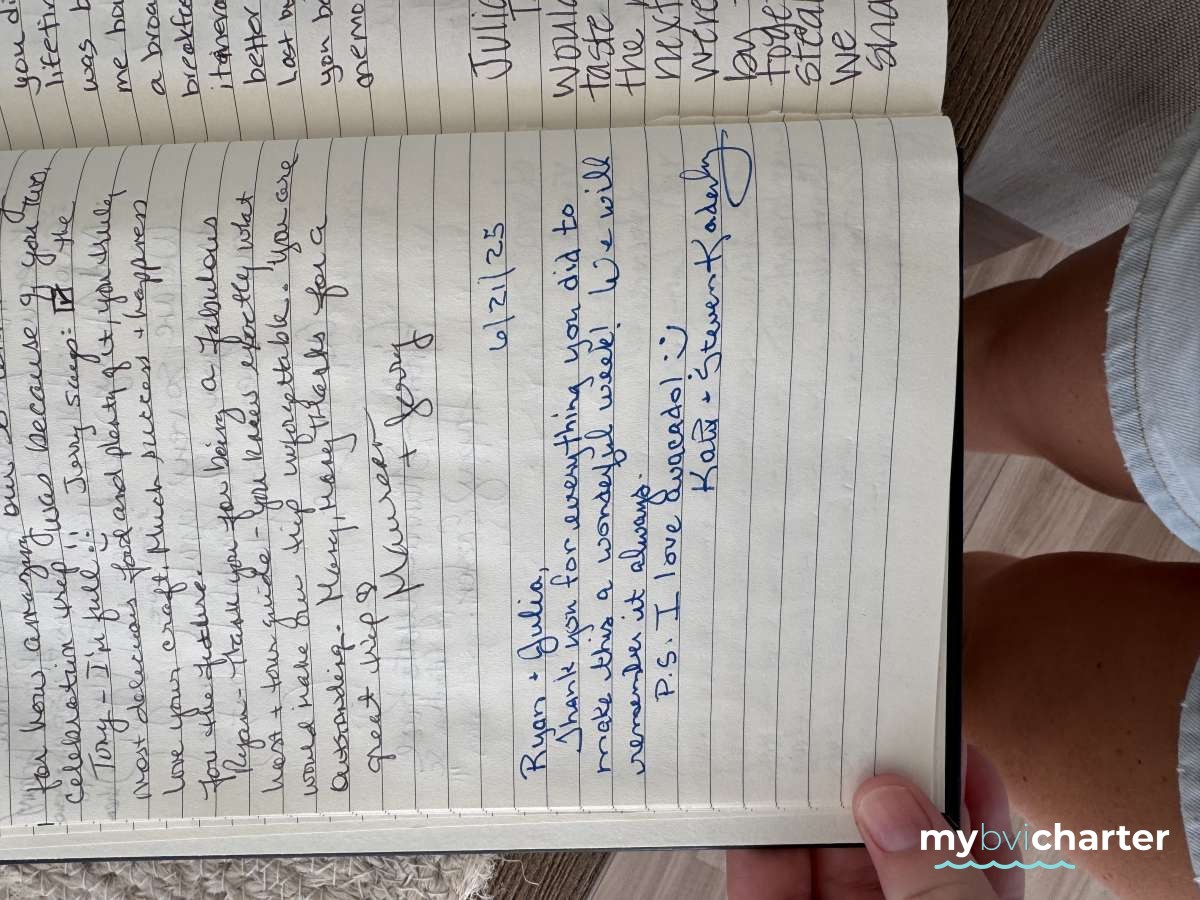 for how amazing was because of you two.
celebration trip!! Jerry says: ☑ the
Tiny - I'm full!!
most delicious food and plenty of it, you truly
love your craft. Much success + happiness
for the future.
Ryan - Thank you for being a fabulous
host + tour guide - you knew exactly what
would make our trip unforgettable. You are
outstanding. Many, many thanks for a
great trip
Maureen + Jerry
6/21/25
Ryan + Julia,
Thank you for everything you did to
make this a wonderful week! We will
remember it always.
P.S. I love avacado! :)
Katie + Steven Kaderly
you di
lifetim
was b
me ho
a broa
breakfa
itinera
better
last n
you b
memo
Julia
would
taste
the
next
were
by
toge
steal
we
sna
mybvicharter